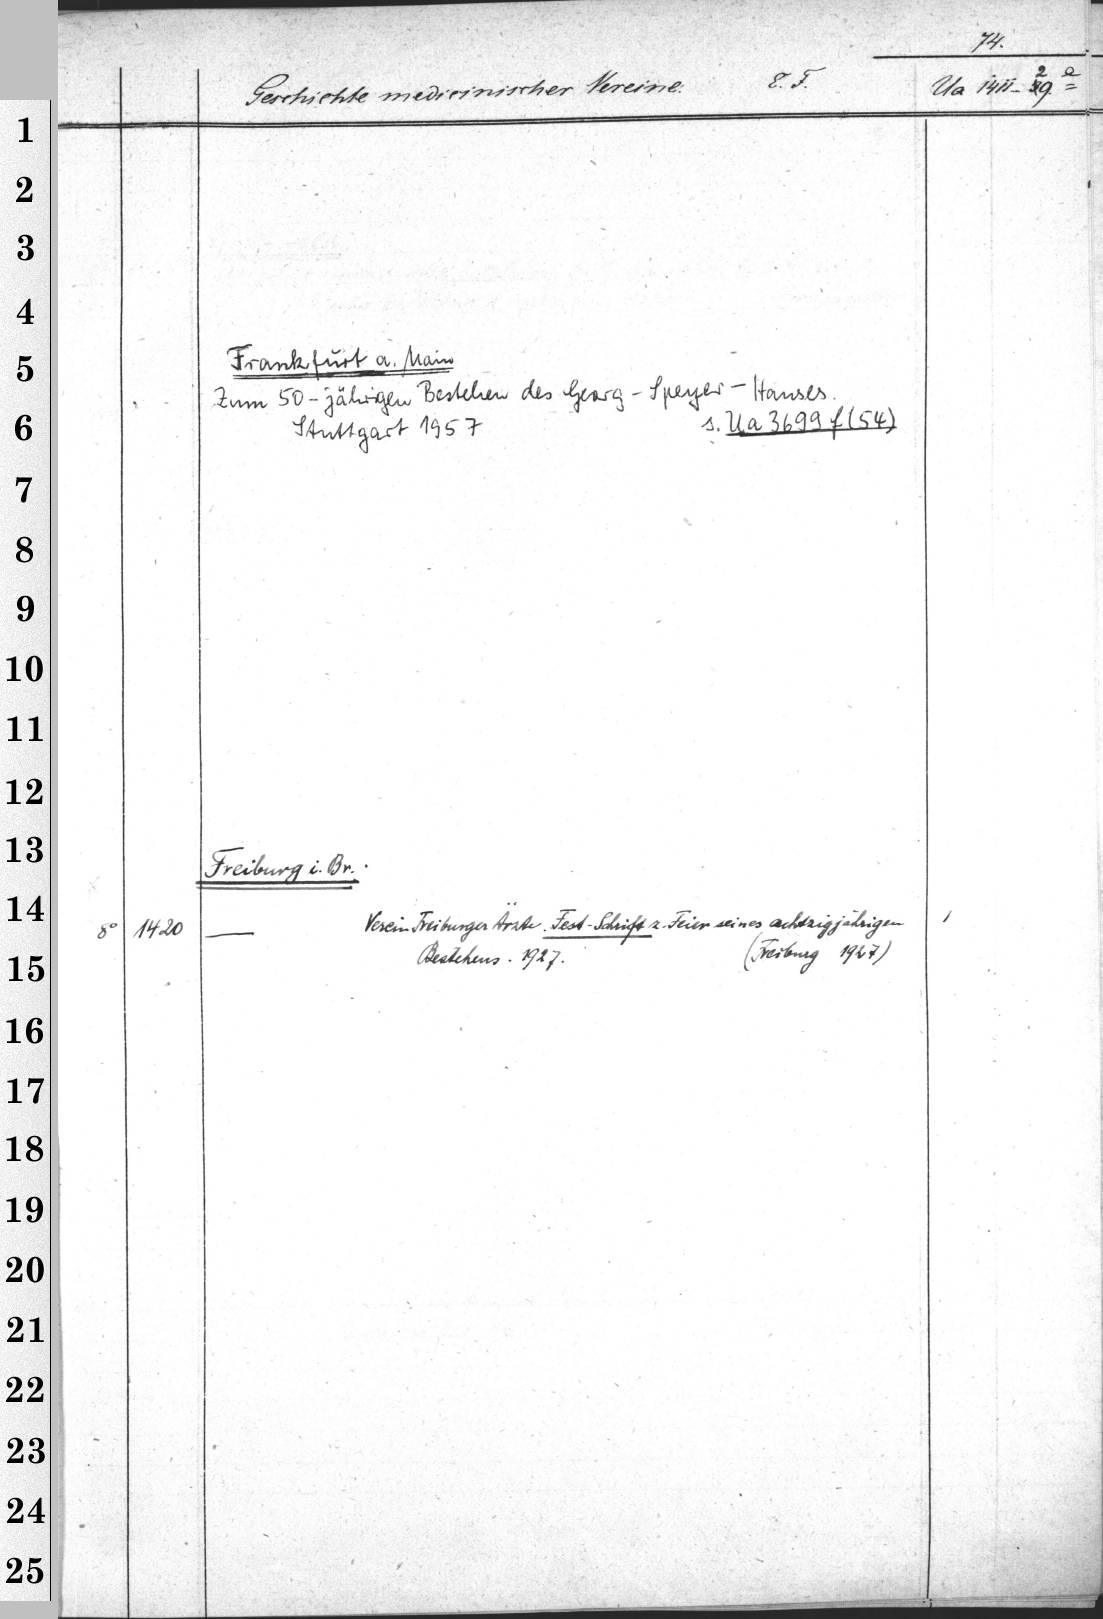 74.
Geschichte medicinischer Vereine. 8. F. Ua 1411-
1
2
3
4
Frankfurt a. Main
5
Zum 50-jährigen Bestehen des Georg-Speyer-Hauses.
6
Stuttgart 1957 s. Ua 3699 f (54)
7
8
9
10
11
12
13
Freiburg i. Br.
14
8° 1420 — Verein Freiburger Ärzte. Fest-Schrift z. Feier seines achtzigjährigen
Bestehens. 1927. (Freiburg 1927)
15
16
17
18
19
20
21
22
23
24
25